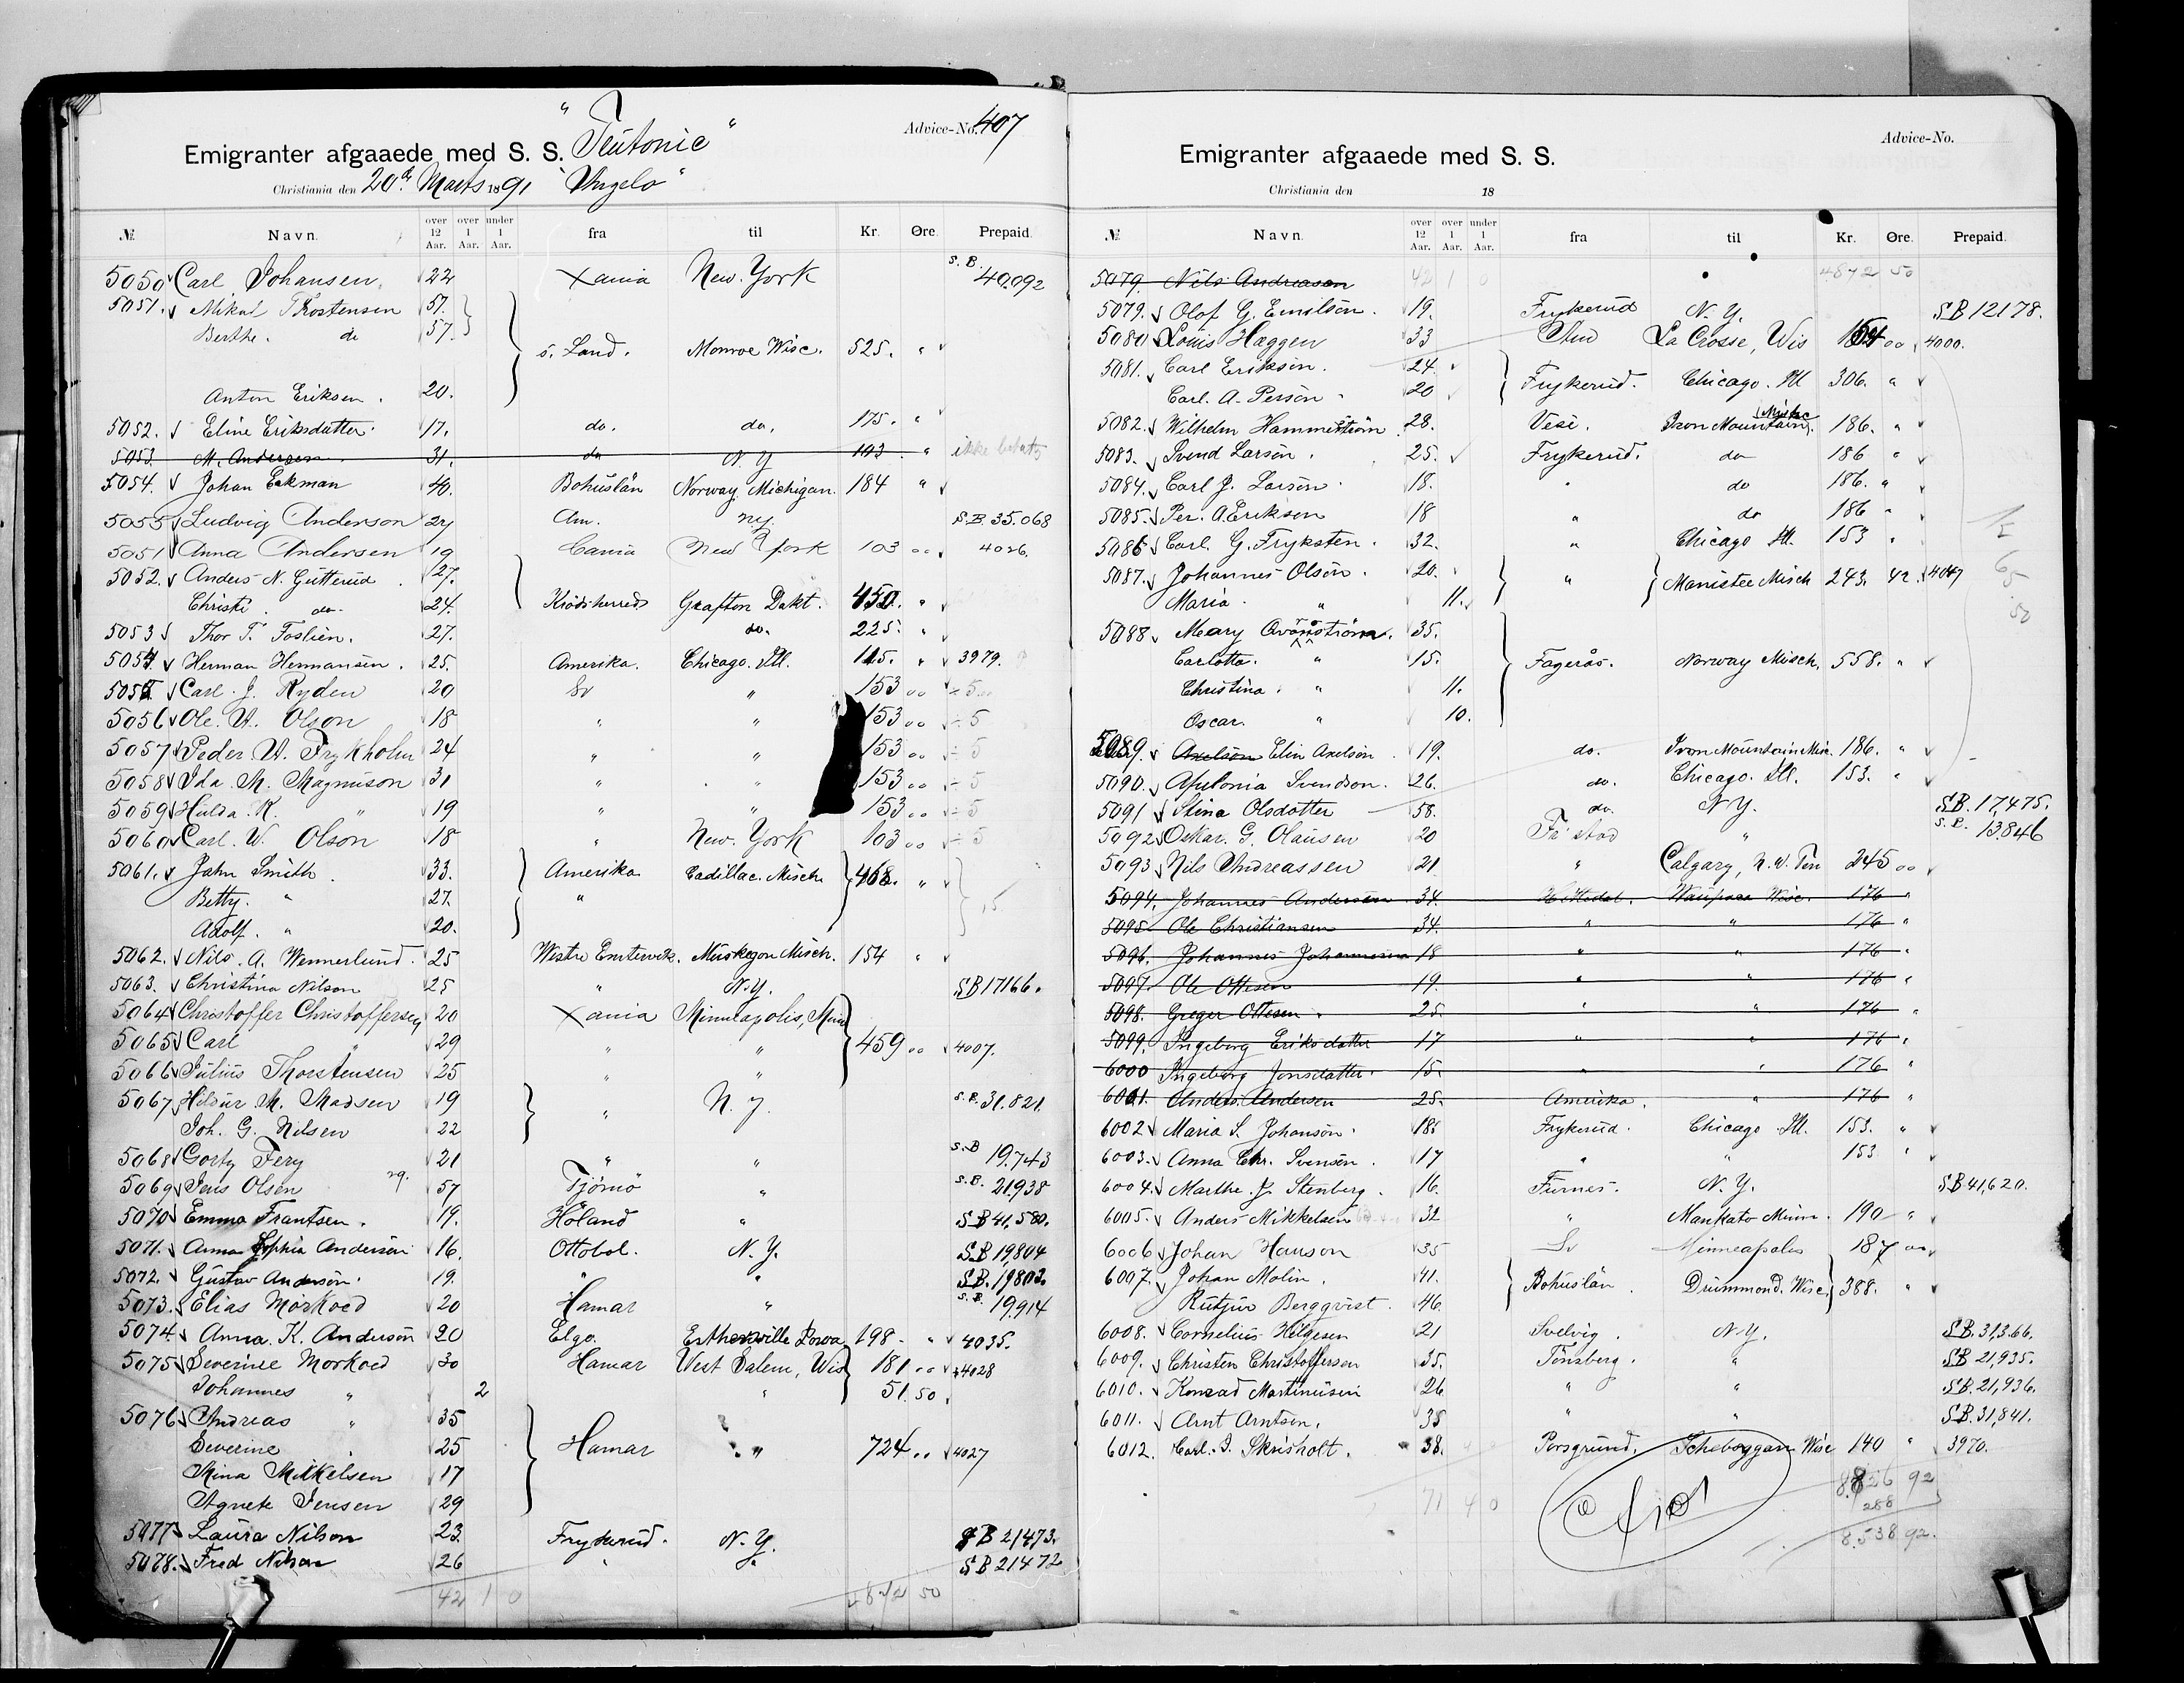 "Teutonic"
Advice-No. 407
Emigranter afgaaede med S. S.
Christiania den 20de Marts 1891 "Angelo"
№ Navn. over 12 Aar. over 1 Aar. under 1 Aar. fra til Kr. Øre. Prepaid.
5050 Carl Johansen, 22 Xania New-York S.B. 40,092
5051. Mikal Thostensen 57.
Berthe. do 57. s. Land. Monroe Wisc. 525. "
Anton Eriksen. 20.
5052. Eline Eriksdatter. 17. do. do. 175. "
5053. M. Andersen 31. do N.Y 103. " ikke betalt
5054. Johan Eekman 40. Bohuslän Norway Michigan. 184 "
5055 Ludvig Anderson 24 Am. N.y. S.B 35.068
5051 Anna Andersen 19 Cania New York 103 00 4026.
5052. Anders N. Gutterud 27.
Christi. do. 24. Krödsherred Grafton Dakt. 450. "
5053 Thor T. Foslien. 27. do. 225. "
5054. Herman Hermansen. 25. Amerika. Chicago. Ill. 115. " 3979.
5055 Carl. J. Ryden 20 Sv " 153 00 ÷ 5
5056 Ole. A. Olson 18 " " 153 00 ÷ 5
5057 Peder A. Frykholm 24 " " 153 00 ÷ 5
5058 Ida. M. Magnuson 31 " " 153 00 ÷ 5
5059 Hulda. K. " 19 " " 153 00 ÷ 5
5060 Carl. W. Olson 18 " New-York 103 00 ÷ 5
5061. John Smith. 33. Amerika Cadillac. Misch. 468. "
Betty. " 27. "
Adolf. " 20.
5062. Nils. A. Wennerlund. 25 Westra Emtervik. Muskegon Misch. 154 "
5063. Christina Nilson 25 " N.Y. SB 17166.
5064 Christoffer Christoffersen 20 Xania Minneapolis, Minn
5065 Carl " 29 " " 459 00 4007.
5066 Julius Thorstensen 25 " "
5067 Hildur M. Madsen 19 " N.Y. S.B. 31.821.
Joh. G. Nilsen 22
5068 Gorty Fery 21 " " S.B 19.743
5069 Jens Olsen 57 Tjömö " S.B. 21.938
5070 Emma Frantsen. 19. Höland " SB 41,580.
5071. Anna Sophia Anderson 16. Ottobol. N.Y. S.B. 19,804
5072. Gustav Anderson. 19. " " SB. 19803.
5073. Elias Mörkved 20 Hamar " S.B. 19,914
5074. Anna. K. Anderson 20 Elgo. Estherville Iowa 198. " 4035.
5075 Severine Morkved 30 Hamar West Salem, Wis 181 00 4028
Johannes " 2 " 51.50
5076 Andreas " 35
Severine " 25 Hamar " 724 00 4027
Mina Mikkelsen 17
Agnete Jensen 29
5077 Laura Nilson 23. Frykerud. N.Y. SB 21473.
5078. Fred Nilson 26 " " SB 21472
42 1 0 4842 50
Advice-No.
Emigranter afgaaede med S. S.
Christiania den 18
№ Navn. over 12 Aar. over 1 Aar. under 1 Aar. fra til Kr. Øre. Prepaid.
5079. Nils Andreasen 42 1 0 4842 50
5079. Olof G. Emilson. 19. Frykerud N.Y. SB 12178.
5080 Louis Haggen 33 La Crosse, Wis 00 4000.
5081. Carl Erikson. 24.
Carl. A. Person. 20 Frykerud. Chicago. Ill 306. "
5082. Wilhelm Hammerström 28. Vese. Iron Mountain, Misch 186. "
5083. Svend Larson. 25. Frykerud. do 186 "
5084. Carl J. Larson. 18. " do 186. "
5085. Per. A. Erikson 18 " do 186 "
5086 Carl. G. Fryksten. 32. " Chicago Ill. 153 "
5087. Johannes Olson. 20. " Manistee Misch 243. 42. 4047
Maria. " 11.
65.50
5088. Meary 35.
Carlotta. " 15. Fagerås. Norway Misch. 558. "
Christina. " 11.
Oscar. " 10.
5089. Axelson Elin Axelson 19. do. Iron Mountain Mich. 186. "
5090. Apelonia Svendson. 26. do. Chicago. Ill. 153. "
5091 Stina Olsdotter 58. do. N.Y. SB. 17,475.
5092 Oskar. G. Olausen 20 Fr stad " S.B. 13,846
5093 Nils Andreassen 21 " Calgary, N.W. Terr 245 00
5094. Johannes Andersen 34. Waupaca Wisc. 176 "
5095. Ole Christiansen 34. " " 176 "
5096. Johannes Johannesen 18 " " 176 "
5097. Ole Ottesen 19. " " 176 "
5098. Greger Ottesen 25. " " 176 "
5099. Ingeborg Eriksdatter 17 " " 176 "
6000 Ingeborg Jonsdatter. 15. " " 176 "
6001. Anders Andersen 25. Amerika. " 176 "
6002 Maria S. Johanson. 18. Frykerud. Chicago Ill. 153. "
6003. Anna Chr. Svensen. 17 " " 153 "
6004. Marthe. J. Stenberg. 16. Furnes. N.Y. SB 41,620.
6005. Anders Mikkelsen 32 " Mankato Minn. 190 "
6006 Johan Hanson 35 Sv Minneapolis 187 00
6007. Johan Molin. 41. Bohuslän Drummond. Wisc. 388. "
Bergqvist. 46.
6008. Cornelius Helgesen 21 Svelvig. N.Y. SB. 31366.
6009. Christen Christoffersen 35. Tönsberg. " SB 21,935.
6010. Konrad Martinusen 26 " " SB. 21,936.
6011. Arnt Arntsen. 35 " " SB. 31,841.
6012. Carl. I. Skrisholt. 38. Porsgrund. Scheboyggan Wisc 140 " 3970.
71 4 0 8826 92
288
8.538 92.